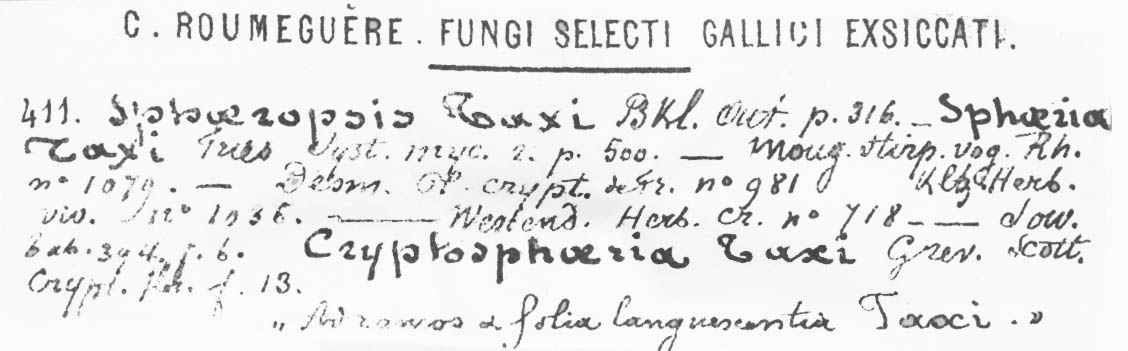 C. ROUMEGUÈRE. FUNGI SELECTI GALLICI EXSICCATI.
411. Sphæropsis Taxi Bkl. Out. p. 316. — Sphæria
Taxi Fries Syst. myc. 2. p. 500. — Moug. Stirp. vog. Rh.
nº 1079. — Desm. Pl. crypt. de Fr. nº 981 Herb.
viv. nº 1936. — Westend. Herb. cr. nº 718 — Sow.
tab. 394. f. 6. Cryptosphæria Taxi Grev. Scott.
Crypt. f. 13.
„ Ad ramos & folia languescentia Taxi. „